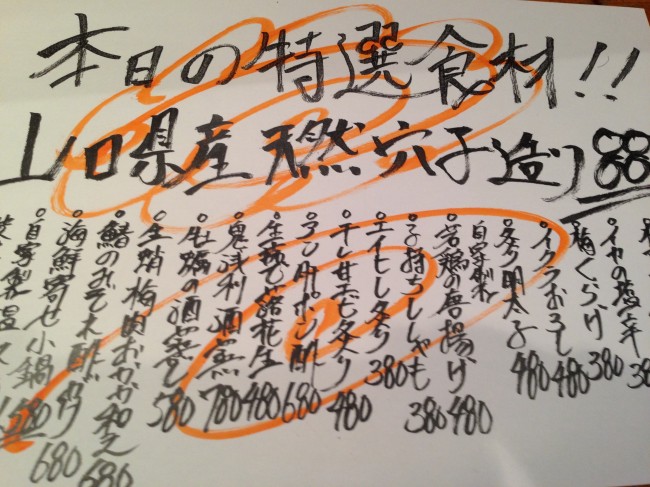 本日の特選食材!!
山口県産天然穴子造り 88
イカの塩辛 380
梅くらげ 380
イクラおろし 480
炙り明太子 480
自家製
若鶏の唐揚げ 480
子持ちししゃも 380
エイヒレ炙り 380
干し甘エビ炙り 480
アン肝ポン酢 680
塩茹で落花生 480
鬼浅利酒蒸 780
牡蠣の酒蒸し 580
生蛸梅肉おかか和え 680
海鮮寄せ小鍋 680
自家製